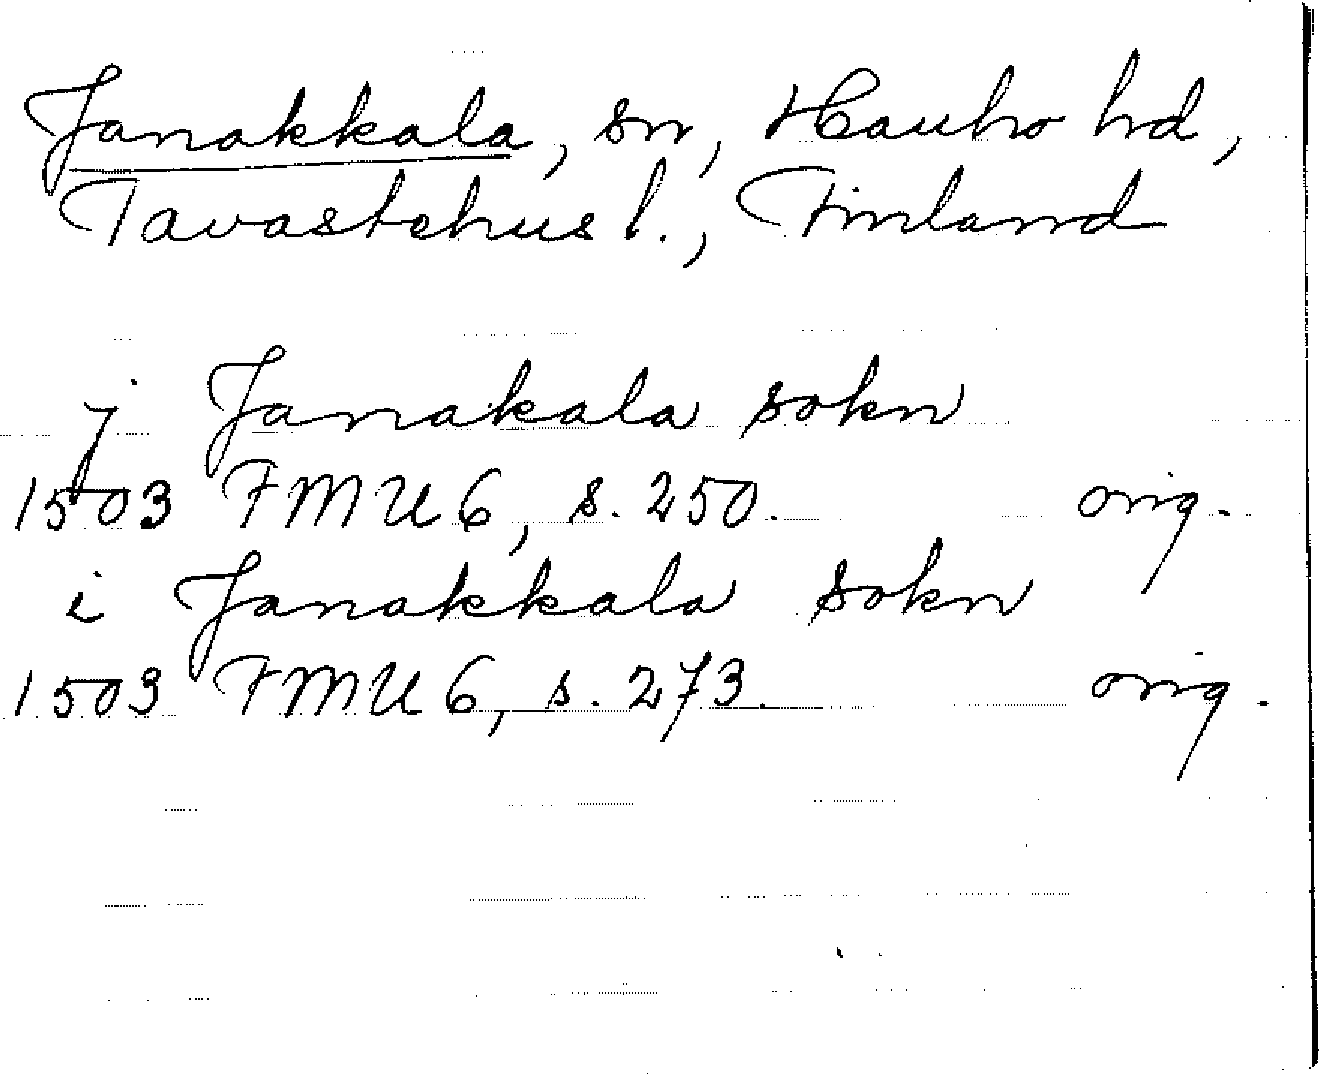 Janakkala, sn, Hauho hd,
Tavastehus l., Finland
j Janakala sokn
1503 FMU 6, s. 250. orig.
i Janakkala sokn
1503 FMU 6, s. 273. orig.